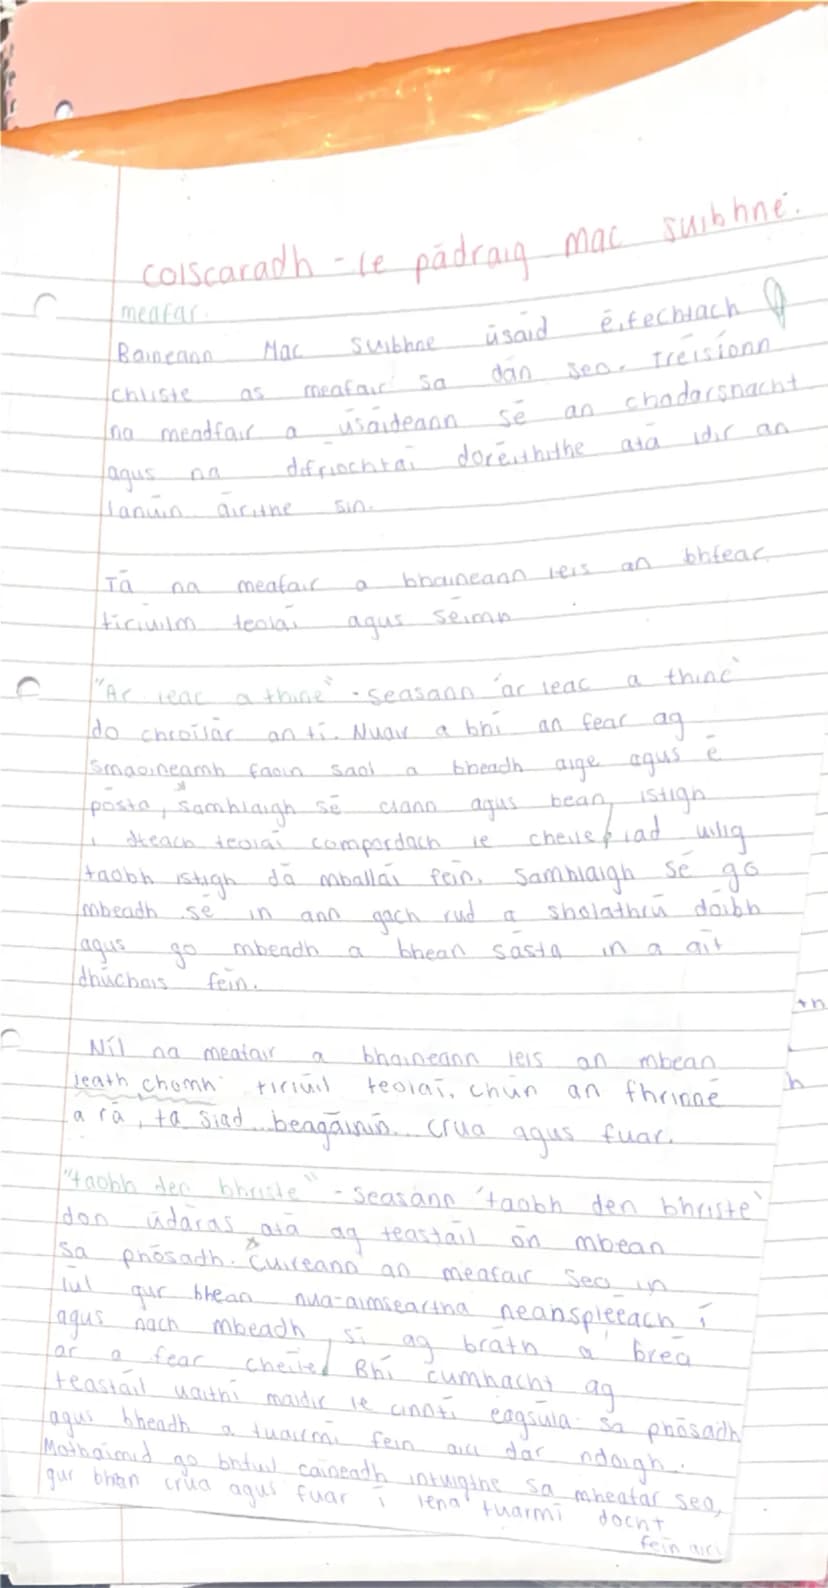 Colscaradh - le pádraig mac suibhne.
meafar.
Baineann Mac Suibhne úsáid éifechtach
chliste as meafair sa dán seo. Tréisíonn
na meadfair a úsáideann sé an chodarsnacht
agus na difríochtaí doréithithe atá idir an
lanúin áirithe sin.
Tá na meafair a bhaineann leis an bhfear
tiriúilm teolaí agus séimh
"Ar leac a thine" - seasann 'ar leac a thine'
do chroílár an tí. Nuair a bhí an fear ag
smaoineamh faoin saol a bheadh aige agus é
pósta, samhlaigh sé clann agus bean, istigh
i dteach teolaí compordach le cheile, iad uilig
taobh istigh dá mballaí féin. Samhlaigh sé go
mbeadh sé in ann gach rud a sholathrú dóibh
agus go mbeadh a bhean sásta in a áit
dhúchais féin.
Níl na meafair a bhaineann leis an mbean
leath chomh tiriúil teolaí, chun an fhrinné
a rá, tá siad beagáinín crua agus fuar.
"taobh den bhriste" - Seasann 'taobh den bhriste'
don údarás atá ag teastáil ón mbean
sa phósadh. Cuireann an meafair seo in
iúl gur bhean nua-aimseartha neanspleeach í
agus nach mbeadh sí ag bráth a breá
ar a fear cheile. Bhí cumhacht ag
teastáil uaithi maidir le cinntí éagsúla sa phósadh
agus bheadh a tuairmí féin aici dar ndóigh.
Mothaímid go bhfuil cáineadh intuigthe sa mheafar seo,
gur bhean crua agus fuar í lena tuarmí docht
féin aici
th
h